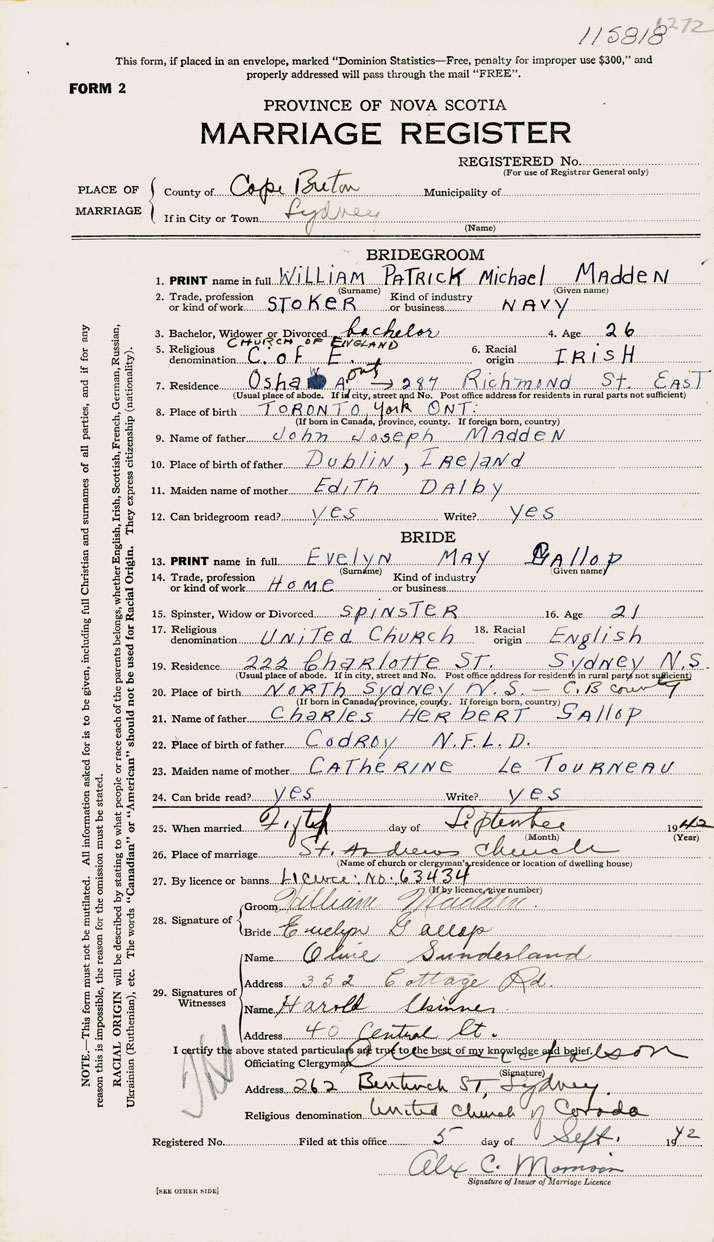 115818 1272
This form, if placed in an envelope, marked "Dominion Statistics—Free, penalty for improper use $300," and
properly addressed will pass through the mail "FREE".
FORM 2
PROVINCE OF NOVA SCOTIA
MARRIAGE REGISTER
REGISTERED No.
(For use of Registrar General only)
PLACE OF MARRIAGE
County of Cape Breton Municipality of
If in City or Town Sydney
(Name)
BRIDEGROOM
1. PRINT name in full WILLIAM PATRICK Michael MADDEN
(Surname) (Given name)
2. Trade, profession or kind of work STOKER Kind of industry or business NAVY
3. Bachelor, Widower or Divorced bachelor 4. Age 26
CHURCH OF ENGLAND
5. Religious denomination C. of E. 6. Racial origin IRISH
7. Residence Oshawa ont → 287 Richmond St. EAST
(Usual place of abode. If in city, street and No. Post office address for residents in rural parts not sufficient)
8. Place of birth TORONTO York ONT.
(If born in Canada, province, county. If foreign born, country)
9. Name of father John Joseph MADDEN
10. Place of birth of father Dublin, IRELAND
11. Maiden name of mother EDITH DALBY
12. Can bridegroom read? yes Write? yes
BRIDE
13. PRINT name in full Evelyn MAY GALLOP
(Surname) (Given name)
14. Trade, profession or kind of work HOME Kind of industry or business
15. Spinster, Widow or Divorced SPINSTER 16. Age 21
17. Religious denomination UNITED CHURCH 18. Racial origin English
19. Residence 222 Charlotte ST. Sydney N.S.
(Usual place of abode. If in city, street and No. Post office address for residents in rural parts not sufficient)
20. Place of birth NORTH Sydney N.S. – C.B county
(If born in Canada, province, county. If foreign born, country)
21. Name of father CHARLES HERBERT GALLOP
22. Place of birth of father CODROY N.F.L.D.
23. Maiden name of mother CATHERINE Le TOURNEAU
24. Can bride read? yes Write? yes
25. When married Fifth day of September 1942
(Month) (Year)
26. Place of marriage St. Andrews Church
(Name of church or clergyman's residence or location of dwelling house)
27. By licence or banns Licence: No. 63434
(If by licence, give number)
28. Signature of
Groom William Madden.
Bride Evelyn Gallop
29. Signatures of Witnesses
Name Olive Sunderland
Address 352 Cottage Rd.
Name Harold Skinner
Address 40 Central St.
I certify the above stated particulars are true to the best of my knowledge and belief.
Officiating Clergyman
(Signature)
Address 262 Bentinck ST, Sydney.
Religious denomination United Church of Canada
Registered No. Filed at this office 5 day of Sept. 1942
Alex C.
Signature of Issuer of Marriage Licence
[SEE OTHER SIDE]
NOTE.—This form must not be mutilated. All information asked for is to be given, including full Christian and surnames of all parties, and if for any
reason this is impossible, the reason for the omission must be stated.
RACIAL ORIGIN will be described by stating to what people or race each of the parents belongs, whether English, Irish, Scottish, French, German, Russian,
Ukrainian (Ruthenian), etc. The words "Canadian" or "American" should not be used for Racial Origin. They express citizenship (nationality).